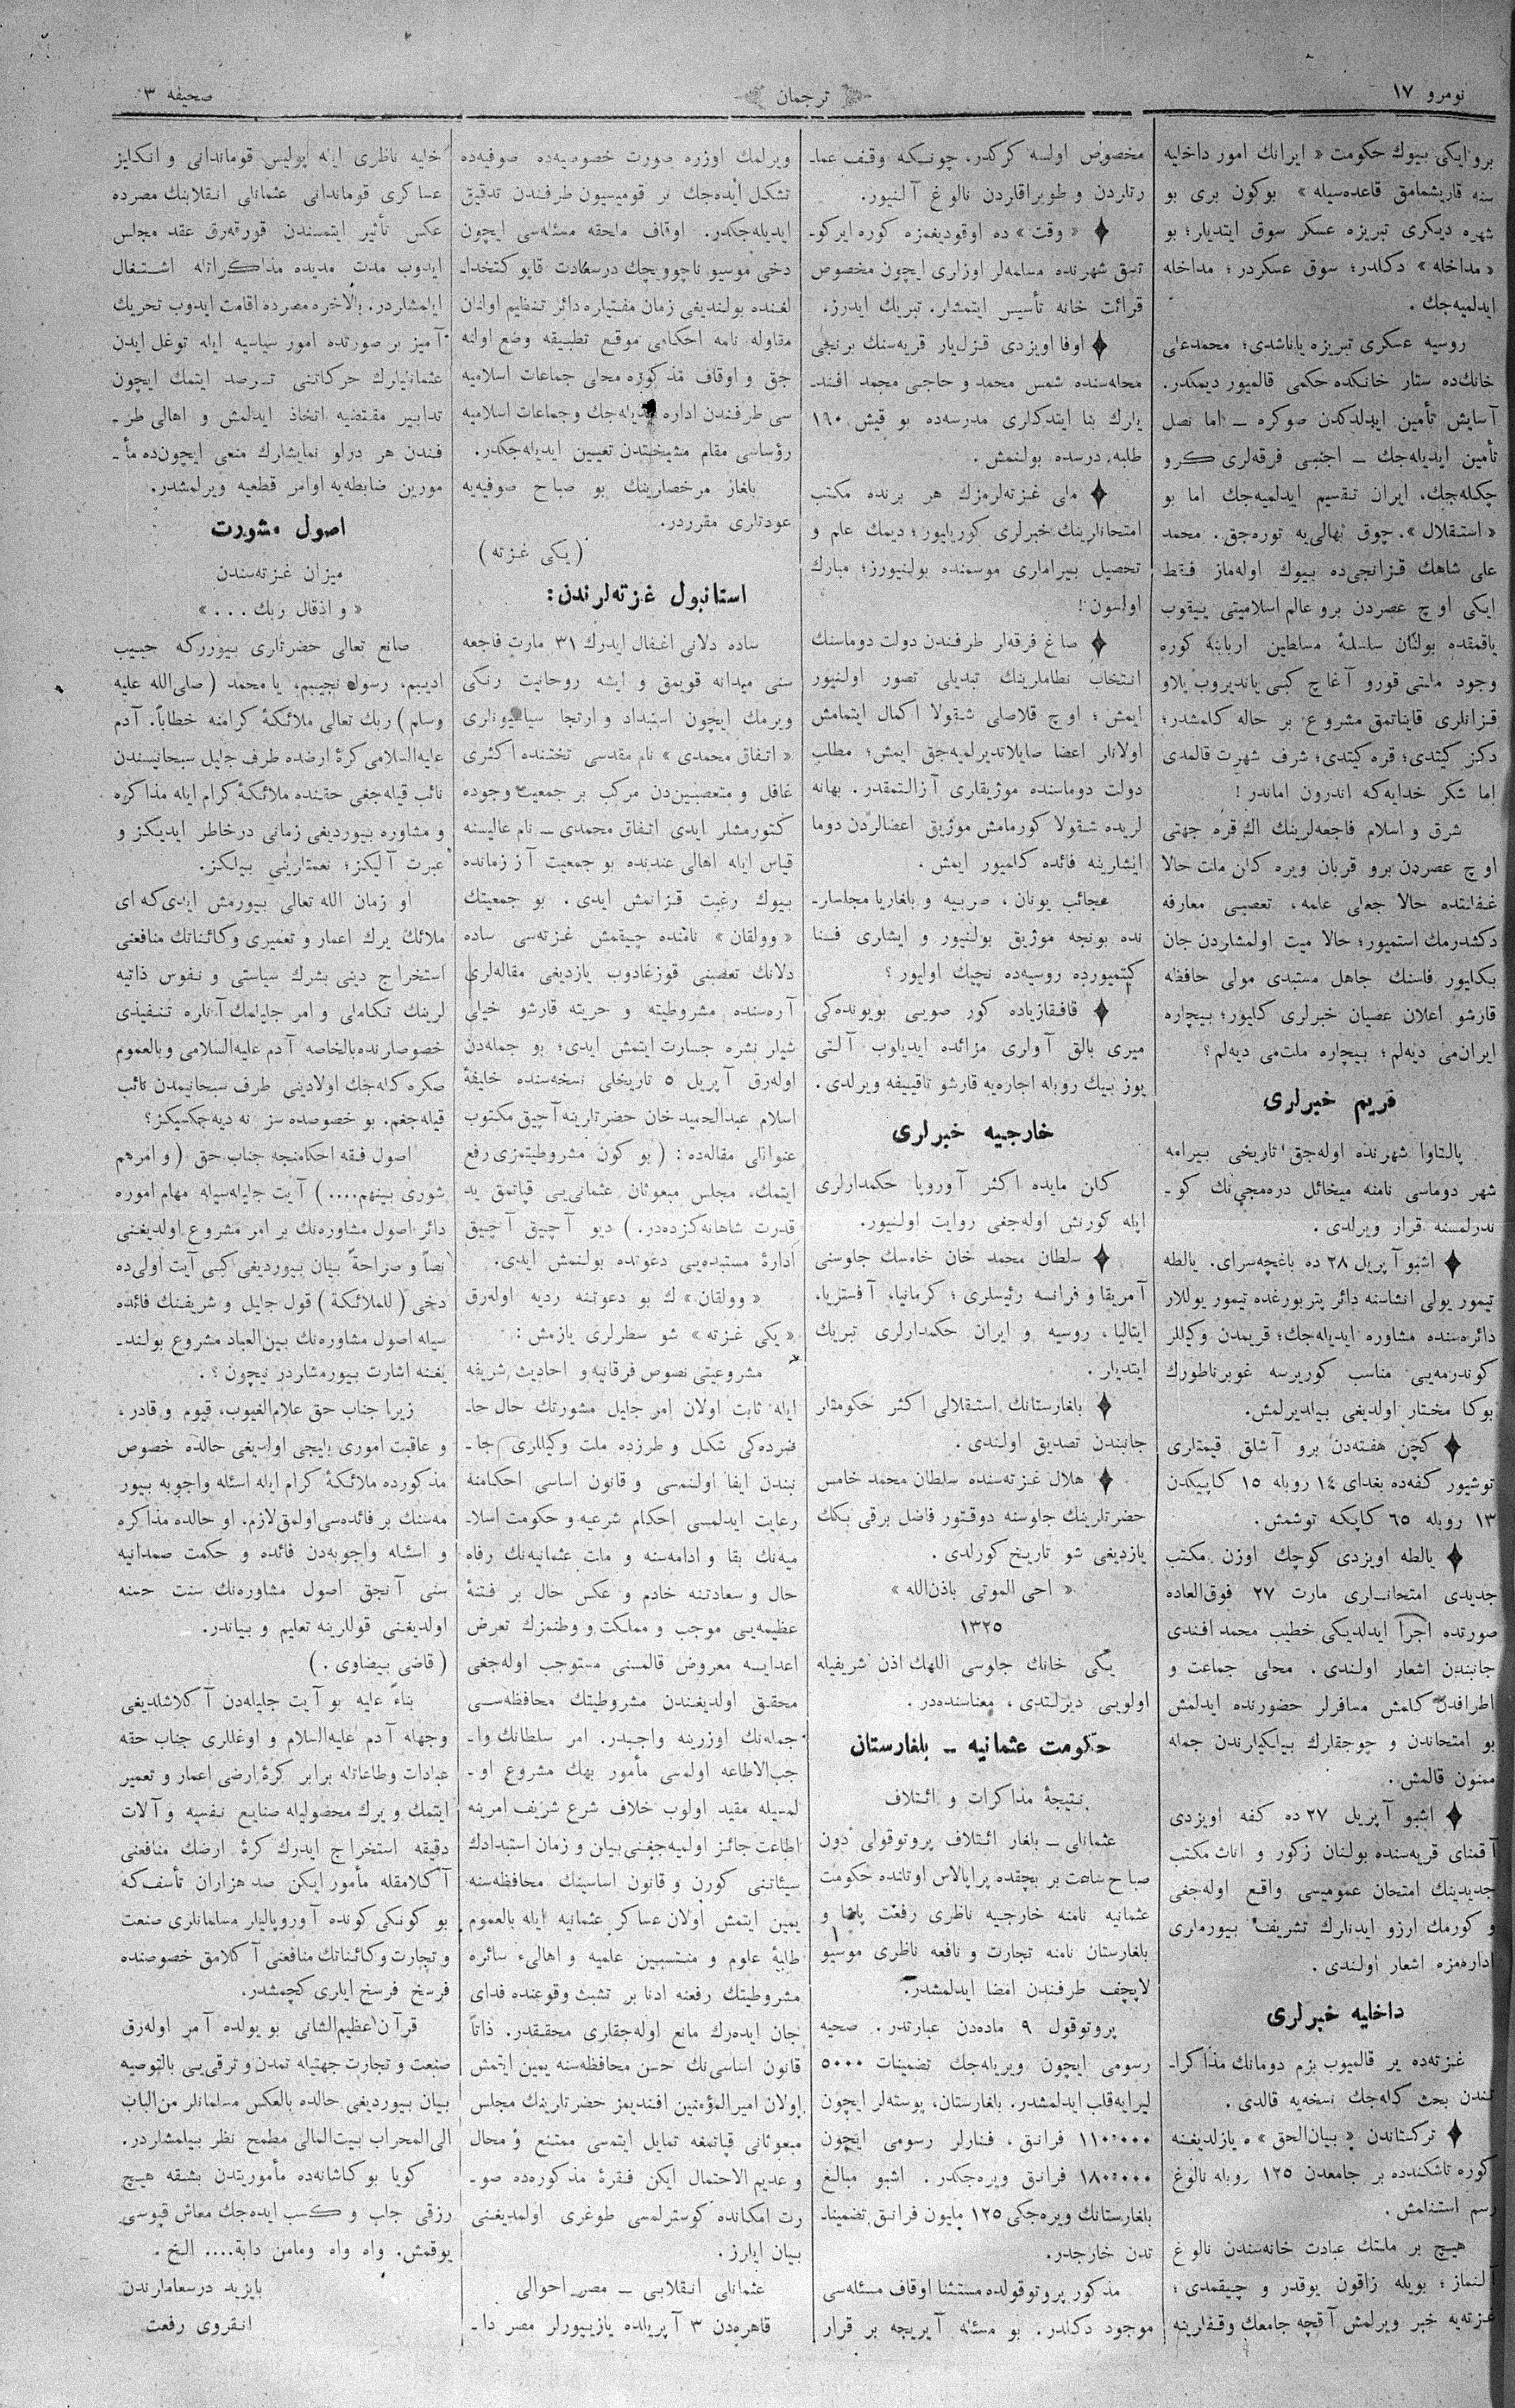 نومرو ١٧
ترجمان
صحیفه ٣
برو ایكی بیوك حكومت « ایرانك امور داخلیه
سنه قاریشمامق قاعده‌سیله » بوكون بری بو
شهره دیكری تبریزه عسكر سوق ایتدیلر؛ بو
« مداخله » دكلدر؛ سوق عسكردر؛ مداخله
ایدلمیه‌جك .
روسیه عسكری تبریزه یاناشدی؛ محمدعلی
خانك‌ده ستار خانكده حكمی قالمیور دیمكدر.
آسایش تأمین ایدلدكدن صوكره ــ اما نصل
تأمین ایدیله‌جك ــ اجنبی فرقه‌لری كرو
چكله‌جك، ایران تقسیم ایدلمیه‌جك اما بو
« استقلال ». چوق بهالی‌یه توره‌جق. محمد
علی شاهك قزانجی‌ده بیوك اوله‌ماز فقط
ایكی اوچ عصردن برو عالم اسلامیتی ییقوب
یاقمقده بولنان سلسلهٔ مسلطین اربابنه كوره
وجود ملتی قورو آغاچ كبی یاندیروب پلاو
قزانلری قایناتمق مشروع بر حاله كلمشدر؛
دكز كیتدی؛ قره كیتدی؛ شرف شهرت قالمدی
اما شكر خدایه‌كه اندرون اماندر !
شرق و اسلام فاجعه‌لرینك اك قره جهتی
اوچ عصردن برو قربان ویره كلن ملت حالا
غفلتده حالا جعلی علمه، تعصبی معارفه
دكشدرمك استمیور؛ حالا میت اولمشلردن جان
بكلیور فاسنك جاهل مستبدی مولی حافظه
قارشو اعلان عصیان خبرلری كلیور؛ بیچاره
ایران‌می دیه‌لم؛ بیچاره ملت‌می دیه‌لم ؟
قریم خبرلری
پالتاوا شهرنده اوله‌جق تاریخی بیرامه
شهر دوماسی نامنه میخائل دره‌مجی‌نك كو ـ
ندرلمسنه قرار ویرلدی .
اشبو آپریل ٢٨ ده باغچه‌سرای. یالطه
تیمور یولی انشاسنه دائر پتربورغده تیمور یوللار
دائره‌سنده مشاوره ایدیله‌جك؛ قریمدن وكیللر
كوندرمه‌یی مناسب كوریرسه غوبرناطورك
بوكا مختار اولدیغی بیلدیرلمش.
كچن هفته‌دن برو آشلق قیمتلری
توشیور كفه‌ده بغدای ١٤ روبله ١٥ كاپیكدن
١٣ روبله ٦٥ كاپكه توشمش.
یالطه اویزدی كوچك اوزن مكتب
جدیدی امتحانــلری مارت ٢٧ فوق‌العاده
صورتده اجرا ایدلدیكی خطیب محمد افندی
جانبندن اشعار اولندی . محلی جماعت و
اطرافدن كلمش مسافرلر حضورنده ایدلمش
بو امتحاندن و چوجقلرك بیلكیلرندن جمله
ممنون قالمش .
اشبو آپریل ٢٧ ده كفه اویزدی
آقمنای قریه‌سنده بولنان زكور و اناث مكتب
جدیدینك امتحان عمومیسی واقع اوله‌جغی
و كورمك ارزو ایدنلرك تشریف بیورملری
اداره‌مزه اشعار اولندی .
داخلیه خبرلری
غزته‌ده یر قالمیوب بزم دومانك مذاكرا ـ
تندن بحث كله‌جك نسخه‌یه قالدی .
تركستاندن « بیان‌الحق » ه یازلدیغنه
كوره تاشكندده بر جامعدن ١٢٥ روبله نالوغ
رسم استنلمش .
هیچ بر ملتك عبادت خانه‌سندن نالوغ
آلنماز ؛ بویله زاقون یوقدر و چیقمدی ؛
غزته‌یه خبر ویرلمش آقچه جامعك وقفلرینه
مخصوص اولسه كركدر، چونــكه وقف عما ـ
رتلردن و طوپراقلردن نالوغ آلنیور.
« وقت » ده اوقودیغمزه كوره ایركو ـ
تسق شهرنده مسلمه‌لر اوزلری ایچون مخصوص
قرائت خانه تأسیس ایتمشلر. تبریك ایدرز.
اوفا اویزدی قزل‌یار قریه‌سنك برنجی
محله‌سنده شمس محمد و حاجی محمد افند ـ
یلرك بنا ایتدكلری مدرسه‌ده بو قیش ١٩٠
طلبه درسده بولنمش .
ملی غزته‌لرمزك هر برنده مكتب
امتحانلرینك خبرلری كوریلیور؛ دیمك علم و
تحصیل بیراملری موسمنده بولنیورز؛ مبارك
اولسون !
صاغ فرقه‌لر طرفندن دولت دوماسنك
انتخاب نظاملرینك تبدیلی تصور اولنیور
ایمش ؛ اوچ قلاصلی شقولا اكمال ایتمامش
اولانلر اعضا صایلاندیرلمیه‌جق ایمش؛ مطلب
دولت دوماسنده موژیقلری آزالتمقدر. بهانه
لریده شقولا كورمامش موژیق اعضالردن دوما
ایشلرینه فائده كلمیور ایمش .
عجائب یونان ، صربیه و بلغاریا مجلسلر ـ
نده بونجه موژیق بولنیور و ایشلری فــنا
كیتمیورده روسیه‌ده نچیك اولیور ؟
قافقازیاده كور صویی بویونده‌كی
میری بالق آولری مزائده ایدیلوب آلتی
یوز بیك روبله اجاره‌یه قارشو تاقییفه ویرلدی.
خارجیه خبرلری
كلن مایده اكثر آوروپا حكمدارلری
ایله كورنش اوله‌جغی روایت اولنیور.
سلطان محمد خان خامسك جلوسنی
آمریقا و فرانسه رئیسلری ؛ كرمانیا، آفستریا،
ایتالیا، روسیه و ایران حكمدارلری تبریك
ایتدیلر .
بلغارستانك استقلالی اكثر حكومتلر
جانبندن تصدیق اولندی .
هلال غزته‌سنده سلطان محمد خامس
حضرتلرینك جلوسنه دوقتور فاضل برقی بكك
یازدیغی شو تاریخ كورلدی .
« احی الموتی باذن‌الله »
١٣٢٥
یكی خانك جلوسی اللهك اذن شریفیله
اولویی دیرلتدی ، معناسنده‌در .
حكومت عثمانیه ــ بلغارستان
نتیجهٔ مذاكرات و ائتلاف
عثمانلی ــ بلغار ائتلاف پروتوقولی دون
صباح ساعت بر بچقده پراپالاس اوتلنده حكومت
عثمانیه نامنه خارجیه ناظری رفعت پاشا و
بلغارستان نامنه تجارت و نافعه ناظری موسیو
لاپچف طرفندن امضا ایدلمشدر.
پروتوقول ٩ ماده‌دن عبارتدر. صحیه
رسومی ایچون ویریله‌جك تضمینات ٥٠٠٠
لیرایه قلب ایدلمشدر. بلغارستان، پوسته‌لر ایچون
١١٠٠٠٠٠ فرانق، فنارلر رسومی ایچون
١٨٠٠٠٠٠ فرانق ویره‌جكدر. اشبو مبالغ
بلغارستانك ویره‌جكی ١٢٥ ملیون فرانق تضمینا ـ
تدن خارجدر.
مذكور پروتوقولده مستثنا اوقاف مسئله‌سی
موجود دكلدر. بو مسئله آیریجه بر قرار
ویرلمك اوزره صورت خصوصیه‌ده صوفیه‌ده
تشكل ایده‌جك بر قومیسیون طرفندن تدقیق
ایدیله‌جكدر. اوقاف ملحقه مسئله‌سی ایچون
دخی موسیو ناچوویچك درسعادت قاپو كتخدا ـ
لغنده بولندیغی زمان مفتیلره دائر تنظیم اولنان
مقاوله نامه احكامی موقع تطبیقه وضع اولنه
جق و اوقاف مذكوره محلی جماعات اسلامیه
سی طرفندن اداره ایدیله‌جك و جماعات اسلامیه
رؤساسی مقام مشیختدن تعیین ایدیله‌جكدر.
بلغار مرخصلرینك بو صباح صوفیه‌یه
عودتلری مقرردر.
( یكی غزته )
استانبول غزته‌لرندن:
ساده دلانی اغفال ایدرك ٣١ مارت فاجعه
سنی میدانه قویمق و ایشه روحانیت رنكی
ویرمك ایچون استبداد و ارتجا سیاسیونلری
« اتفاق محمدی » نام مقدسی تختنده اكثری
غافل و متعصبین‌دن مركب بر جمعیت وجوده
كتورمشلر ایدی اتفاق محمدی ــ نام عالیسنه
قیاس ایله اهالی عندنده بو جمعیت آز زمانده
بیوك رغبت قزانمش ایدی . بو جمعیتك
« وولقان » نامنده چیقمش غزته‌سی ساده
دلانك تعصبنی قوزغادوب یازدیغی مقاله‌لری
آره‌سنده مشروطیته و حریته قارشو خیلی
شیلر نشره جسارت ایتمش ایدی؛ بو جمله‌دن
اوله‌رق آپریل ٥ تاریخلی نسخه‌سنده خلیفهٔ
اسلام عبدالحمید خان حضرتلرینه آچیق مكتوب
عنوانلی مقاله‌ده : ( بو كون مشروطیتمزی رفع
ایتمك، مجلس مبعوثان عثمانی‌یی قپاتمق ید
قدرت شاهانه‌كزده‌در. ) دیو آچیق آچیق
ادارهٔ مستبده‌یی دعوتده بولنمش ایدی.
« وولقان » ك بو دعوتنه ردیه اوله‌رق
« یكی غزته » شو سطرلری یازمش :
مشروعیتی نصوص فرقانیه و احادیث شریفه
ایله ثابت اولان امر جلیل مشورتك حال حا ـ
ضرده‌كی شكل و طرزده ملت وكیللری جا ـ
نبندن ایفا اولنمسی و قانون اساسی احكامنه
رعایت ایدلمسی احكام شرعیه و حكومت اسلا ـ
میه‌نك بقا و ادامه‌سنه و ملت عثمانیه‌نك رفاه
حال و سعادتنه خادم و عكس حال بر فتنهٔ
عظیمه‌یی موجب و مملكت و وطنمزك تعرض
اعدایــه معروض قالمسنی مستوجب اوله‌جغی
محقق اولدیغندن مشروطیتك محافظه‌ســی
جمله‌نك اوزرینه واجبدر. امر سلطانك وا ـ
جب‌الاطاعه اولمسی مأمور بهك مشروع او ـ
لمسیله مقید اولوب خلاف شرع شریف امرینه
اطاعت جائز اولمیه‌جغنی بیان و زمان استبدادك
سیئاتنی كورن و قانون اساسینك محافظه‌سنه
یمین ایتمش اولان عساكر عثمانیه ایله بالعموم
طلبهٔ علوم و منتسبین علمیه و اهالیء سائره
مشروطیتك رفعنه ادنا بر تشبث وقوعنده فدای
جان ایده‌رك مانع اوله‌جقلری محققدر. ذاتاً
قانون اساسی‌نك حسن محافظه‌سنه یمین ایتمش
اولان امیرالمؤمنین افندیمز حضرتلرینك مجلس
مبعوثانی قپاتمغه تمایل ایتمسی ممتنع و محال
و عدیم الاحتمال ایكن فقرهٔ مذكوره‌ده صو ـ
رت امكانده كوسترلمسی طوغری اولمدیغنی
بیان ایلرز .
عثمانلی انقلابی ــ مصر احوالی
قاهره‌دن ٣ آپریلده یازییورلر مصر دا ـ
خلیه ناظری ایله پولیس قوماندانی و انكلیز
عساكری قوماندانی عثمانلی انقلابنك مصرده
عكس تأثیر ایتمسندن قورقه‌رق عقد مجلس
ایدوب مدت مدیده مذاكراتله اشــتغال
ایلمشلردر. بالاخره مصرده اقامت ایدوب تحریك
آمیز بر صورتده امور سیاسیه ایله توغل ایدن
عثمانلیلرك حركاتنی تــرصد ایتمك ایچون
تدابیر مقتضیه اتخاذ ایدلمش و اهالی طر ـ
فندن هر درلو نمایشلرك منعی ایچون‌ده مأ ـ
مورین ضابطه‌یه اوامر قطعیه ویرلمشدر.
اصول مشورت
میزان غزته‌سندن
« و اذقال ربك . . . »
صانع تعالی حضرتلری بیوررکه حبیب
ادیبم، رسول نجیبم، یا محمد ( صلی‌الله علیه
وسلم ) ربك تعالی ملائكهٔ كرامنه خطاباً. آدم
علیه‌السلامی كرهٔ ارضده طرف جلیل سبحانیسندن
نائب قیله‌جغی حقنده ملائكهٔ كرام ایله مذاكره
و مشاوره بیوردیغی زمانی درخاطر ایدیكز و
عبرت آلیكز ؛ نعمتلرینی بیلكز.
او زمان الله تعالی بیورمش ایدی‌كه ای
ملائك یرك اعمار و تعمیری و كائناتك منافعنی
استخراج دینی بشرك سیاستی و نفوس ذاتیه
لرینك تكاملی و امر جلیلمك آنلره تنفیذی
خصوصلرنده بالخاصه آدم علیه‌السلامی و بالعموم
صكره كله‌جك اولادینی طرف سبحانیمدن نائب
قیله‌جغم. بو خصوصده سز نه دیه‌جكسیكز؟
اصول فقه احكامنجه جناب حق ( و امرهم
شوری بینهم.... ) آیت جلیله‌سیله مهام اموره
دائر اصول مشاوره‌نك بر امر مشروع اولدیغنی
نصاً و صراحةً بیان بیوردیغی كبی آیت اولی‌ده
دخی ( للملائكة ) قول جلیل و شریفنك فائده
سیله اصول مشاوره‌نك بین‌العباد مشروع بولند ـ
یغنه اشارت بیورمشلردر نیچون ؟ .
زیرا جناب حق علام‌الغیوب، قیوم و قادر،
و عاقبت اموری بلیجی اولدیغی حالده خصوص
مذكورده ملائكهٔ كرام ایله اسئله و اجوبه بیور
مه‌سنك بر فائده‌سی اولمق لازم. او حالده مذاكره
و اسئله و اجوبه‌دن فائده و حكمت صمدانیه
سنی آنجق اصول مشاوره‌نك سنت حسنه
اولدیغنی قوللرینه تعلیم و بیاندر.
( قاضی بیضاوی . )
بناءً علیه بو آیت جلیله‌دن آكلاشلدیغی
وجهله آدم علیه‌السلام و اوغللری جناب حقه
عبادات و طاعاتله برابر كرهٔ ارضی اعمار و تعمیر
ایتمك و یرك محصولیله صنایع نفسیه و آلات
دقیقه استخراج ایدرك كرهٔ ارضك منافعنی
آكلامقله مأمور ایكن صد هزاران تأسف‌كه
بو كونكی كونده آوروپالیلر مسلمانلری صنعت
و تجارت و كائناتك منافعنی آكلامق خصوصنده
فرسخ فرسخ ایلری كچمشدر.
قرآن عظیم‌الشانی بو یولده آمر اوله‌رق
صنعت و تجارت جهتیله تمدن و ترقی‌یی بالتوصیه
بیان بیوردیغی حالده بالعكس مسلمانلر من‌الباب
الی‌المحراب بیت‌المالی مطمح نظر بیلمشلردر.
كویا بو كاشانه‌ده مأموریتدن بشقه هیچ
رزقی جلب و كسب ایده‌جك معاش قپوسی
یوقمش. واه واه ومامن دابة.... الخ .
بایزید درسعاملرندن
انقروی رفعت